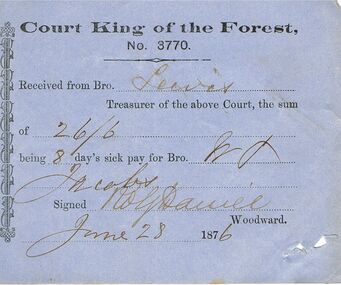 Court King of the Forest,
No. 3770.
Received from Bro. Lewis
Treasurer of the above Court, the sum
of 26/6
being 8 day's sick pay for Bro. W
Jacobs
Signed
Woodward.
June 28 1876